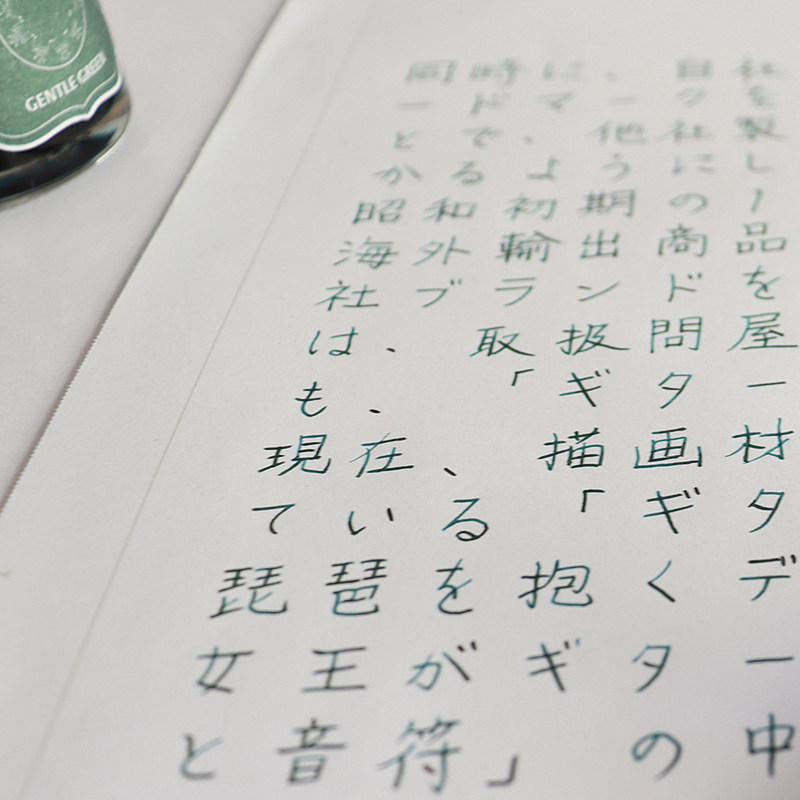 GENTLE GREEN
同時に、自社
ードマークを
とで、他社製
かるようにし
昭和初期の
海外輸出商品
社ブランドを
は、取扱問屋
も、「ギター
現在、描画材
ている「ギタ
琵琶を抱くデ
女王がギター
と音符」の中